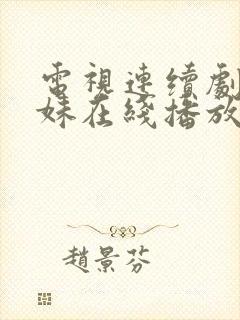 電視連續劇
妹在綫播放
趙景芬